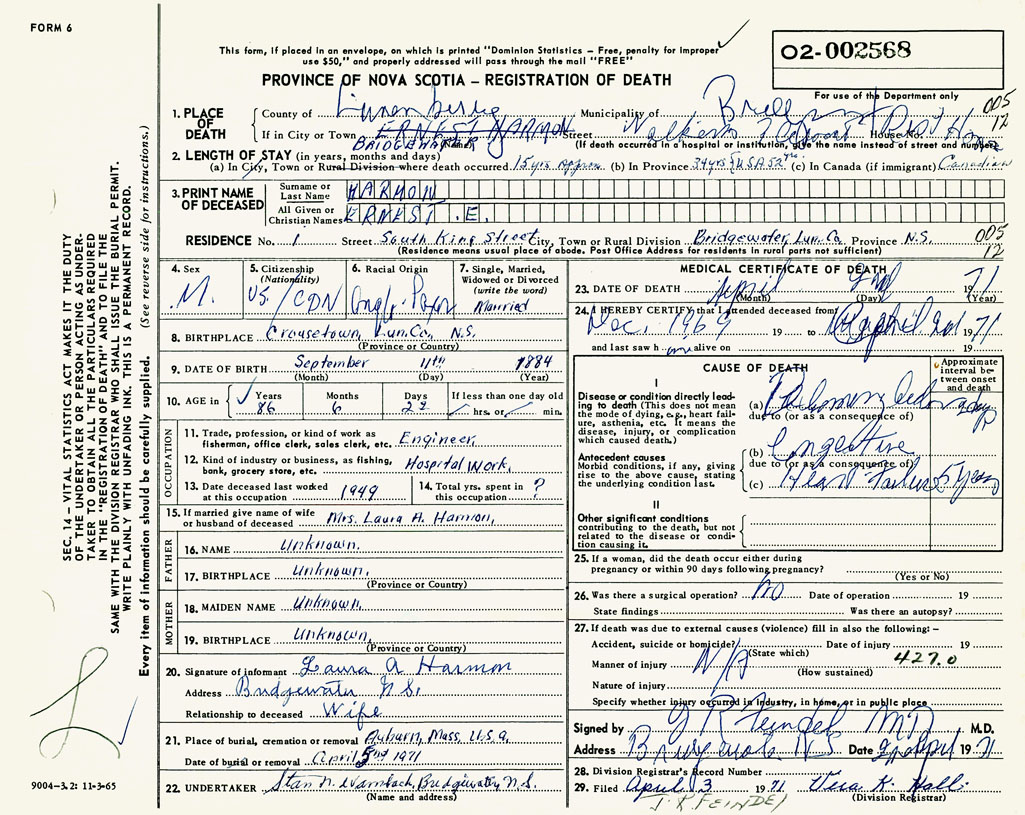 FORM 6
This form, if placed in an envelope, on which is printed "Dominion Statistics – Free, penalty for improper
use $50," and properly addressed will pass through the mail "FREE"
02-002568
PROVINCE OF NOVA SCOTIA – REGISTRATION OF DEATH
For use of the Department only
005
12
1. PLACE OF DEATH
County of Lunenburg Municipality of
If in City or Town ERNEST HARMON Street House No.
BRIDGEWATER
(If death occurred in a hospital or institution, give the name instead of street and number)
2. LENGTH OF STAY (in years, months and days)
(a) In City, Town or Rural Division where death occurred 15 yrs approx (b) In Province 34 yrs (USA 52 yrs) (c) In Canada (if immigrant) Canadian
3. PRINT NAME OF DECEASED
Surname or Last Name HARMON
All Given or Christian Names ERNEST .E.
RESIDENCE No. 1 Street South King Street City, Town or Rural Division Bridgewater, Lun. Co. Province N.S.
005
12
(Residence means usual place of abode. Post Office Address for residents in rural parts not sufficient)
4. Sex M.
5. Citizenship (Nationality) US/CDN
6. Racial Origin
7. Single, Married, Widowed or Divorced (write the word) Married
8. BIRTHPLACE Crousetown, Lun. Co., N.S.
(Province or Country)
9. DATE OF BIRTH September 11th 1884
(Month) (Day) (Year)
10. AGE in Years 86 Months 6 Days 22 If less than one day old
hrs. or min.
OCCUPATION
11. Trade, profession, or kind of work as fisherman, office clerk, sales clerk, etc. Engineer
12. Kind of industry or business, as fishing, bank, grocery store, etc. Hospital Work.
13. Date deceased last worked at this occupation 1949
14. Total yrs. spent in this occupation ?
15. If married give name of wife or husband of deceased Mrs. Laura A. Harmon,
FATHER
16. NAME Unknown.
17. BIRTHPLACE Unknown.
(Province or Country)
MOTHER
18. MAIDEN NAME Unknown.
19. BIRTHPLACE Unknown.
(Province or Country)
20. Signature of informant Laura A Harmon
Address Bridgewater N.S.
Relationship to deceased Wife
21. Place of burial, cremation or removal Auburn, Mass, U.S.A.
Date of burial or removal April 3rd 1971
22. UNDERTAKER Stan N. Wambach, Bridgewater, N.S.
(Name and address)
MEDICAL CERTIFICATE OF DEATH
23. DATE OF DEATH April 2nd 1971
(Month) (Day) (Year)
24. I HEREBY CERTIFY that I attended deceased from
Dec. 1969 19 to April 2nd 1971
and last saw h im alive on 19
CAUSE OF DEATH
Approximate interval between onset and death
I
Disease or condition directly leading to death (This does not mean the mode of dying, e.g., heart failure, asthenia, etc. It means the disease, injury, or complication which caused death.)
(a) Pulmonary oedema
due to (or as a consequence of)
Antecedent causes
Morbid conditions, if any, giving rise to the above cause, stating the underlying condition last.
(b) Congestive
due to (or as a consequence of)
(c) Heart Failure 5 years
II
Other significant conditions
contributing to the death, but not related to the disease or condition causing it.
25. If a woman, did the death occur either during
pregnancy or within 90 days following pregnancy?
(Yes or No)
26. Was there a surgical operation? No Date of operation 19
State findings Was there an autopsy?
27. If death was due to external causes (violence) fill in also the following: –
Accident, suicide or homicide? Date of injury 19
(State which)
Manner of injury N/A 427.0
(How sustained)
Nature of injury
Specify whether injury occurred in industry, in home, or in public place
Signed by J R Feindel MD M.D.
Address Bridgewater N S Date 2nd April 1971
28. Division Registrar's Record Number
29. Filed April 3 1971 Vera K. Hall
(Division Registrar)
J. R FEINDEL
SEC. 14 – VITAL STATISTICS ACT MAKES IT THE DUTY
OF THE UNDERTAKER OR PERSON ACTING AS UNDERTAKER
TO OBTAIN ALL THE PARTICULARS REQUIRED
IN THE "REGISTRATION OF DEATH" AND TO FILE THE
SAME WITH THE DIVISION REGISTRAR WHO SHALL ISSUE THE BURIAL PERMIT.
WRITE PLAINLY WITH UNFADING INK. THIS IS A PERMANENT RECORD.
Every item of information should be carefully supplied. (See reverse side for instructions.)
9004–3.2: 11-3-65